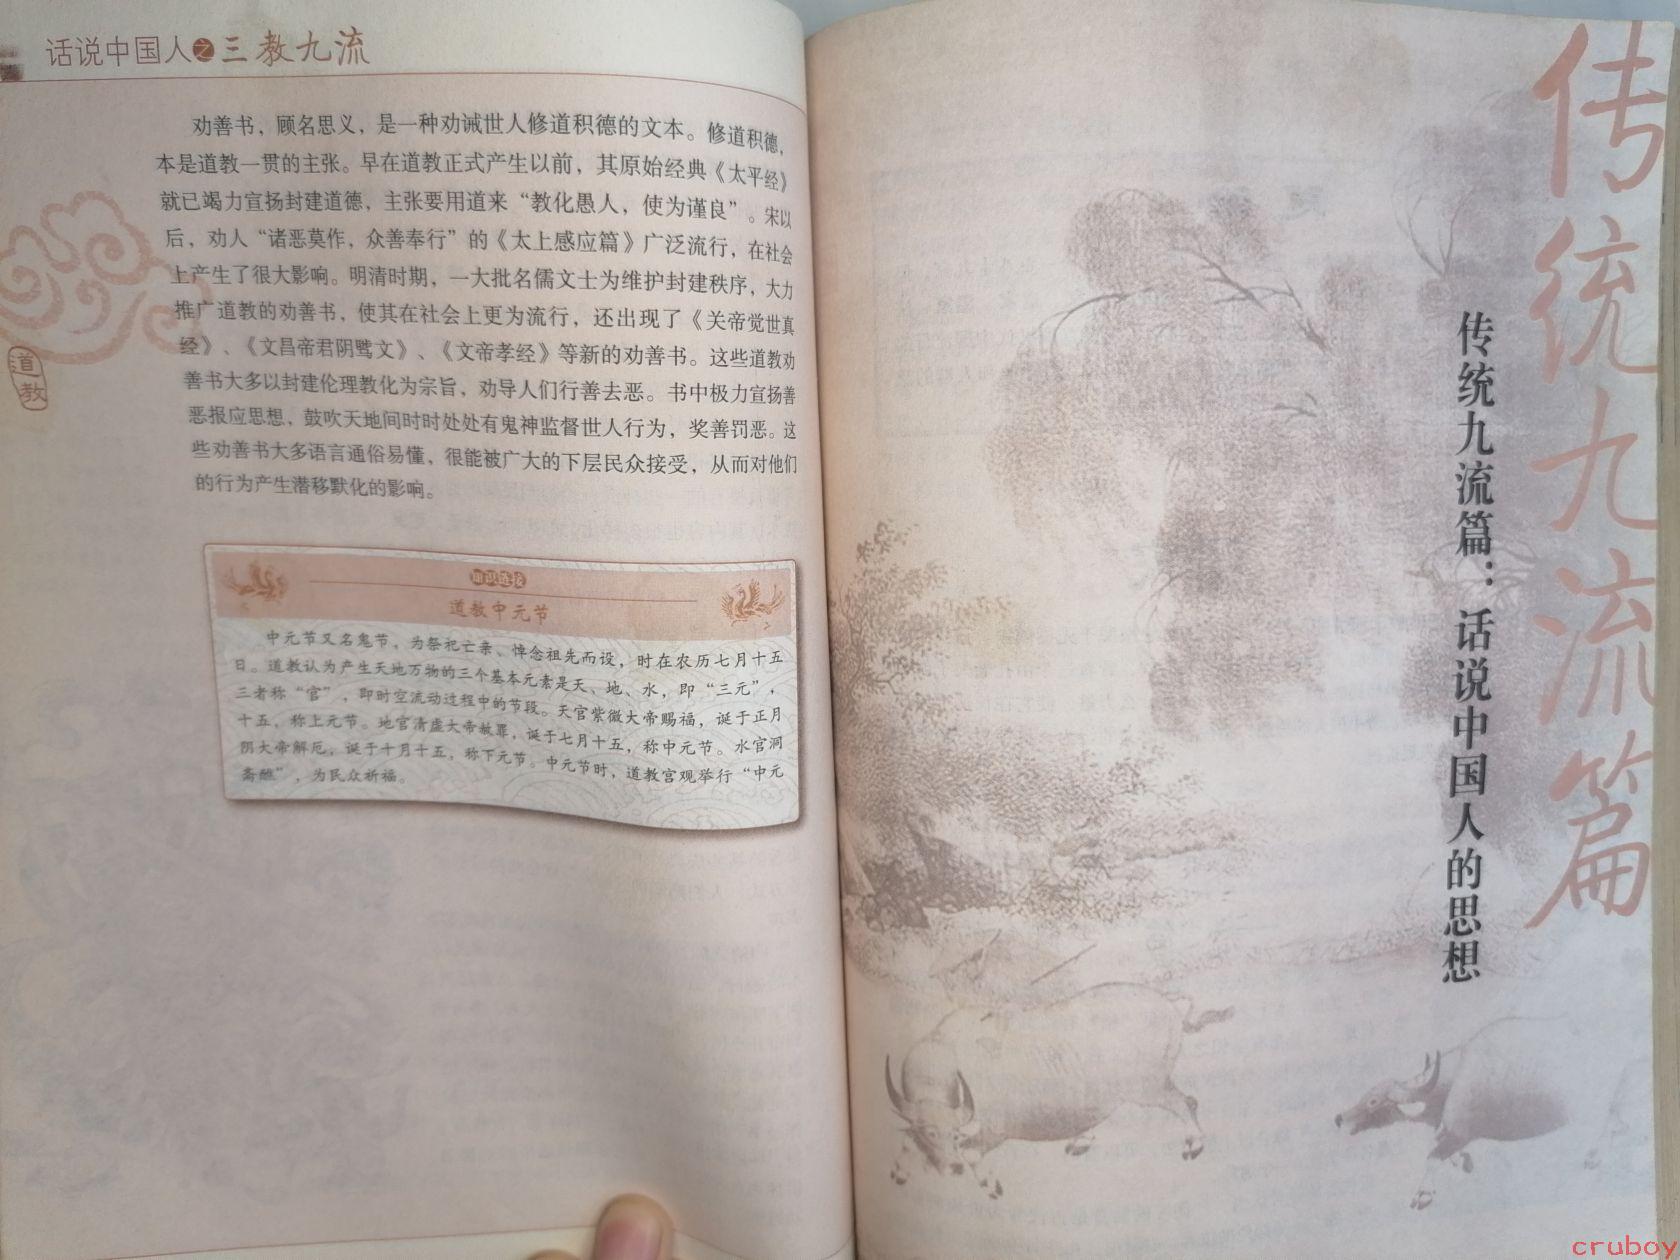 话说中国人之三教九流
劝善书，顾名思义，是一种劝诫世人修道积德的文本。修道积德，
本是道教一贯的主张。早在道教正式产生以前，其原始经典《太平经》
就已竭力宣扬封建道德，主张要用道来“教化愚人，使为谨良”。宋以
后，劝人“诸恶莫作，众善奉行”的《太上感应篇》广泛流行，在社会
上产生了很大影响。明清时期，一大批名儒文士为维护封建秩序，大力
推广道教的劝善书，使其在社会上更为流行，还出现了《关帝觉世真
经》、《文昌帝君阴骘文》、《文帝孝经》等新的劝善书。这些道教劝
善书大多以封建伦理教化为宗旨，劝导人们行善去恶。书中极力宣扬善
恶报应思想，鼓吹天地间时时处处有鬼神监督世人行为，奖善罚恶。这
些劝善书大多语言通俗易懂，很能被广大的下层民众接受，从而对他们
的行为产生潜移默化的影响。
道教
知识链接
道教中元节
中元节又名鬼节，为祭祀亡亲、悼念祖先而设，时在农历七月十五
日。道教认为产生天地万物的三个基本元素是天、地、水，即“三元”，
三者称“官”，即时空流动过程中的节段。天官紫微大帝赐福，诞于正月
十五，称上元节。地官清虚大帝赦罪，诞于七月十五，称中元节。水官洞
阴大帝解厄，诞于十月十五，称下元节。中元节时，道教宫观举行“中元
斋醮”，为民众祈福。
传统九流篇
传统九流篇：话说中国人的思想
cruboy